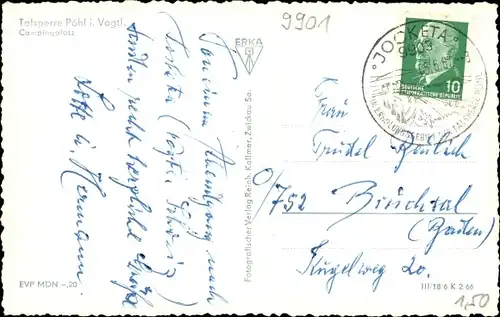 Talsperre Pöhl i. Vogtl.
Campingplatz
9901
ERKA
Von einem Ausflug nach
Jocketa (Vogtl. Schweiz)
senden recht herzliche Grüße
Lotte u. Hermann.
EVP MDN -,20
Fotografischer Verlag Reinh. Kallmer, Zwickau Sa.
JOCKETA
9903
DEUTSCHE
DEMOKRATISCHE REPUBLIK
10
TALSPERRE PÖHL
Frau
Trudel
O/752 Bruchsal
(Baden)
Kugelweg 20.
III/18/6 K 2 66
1,50